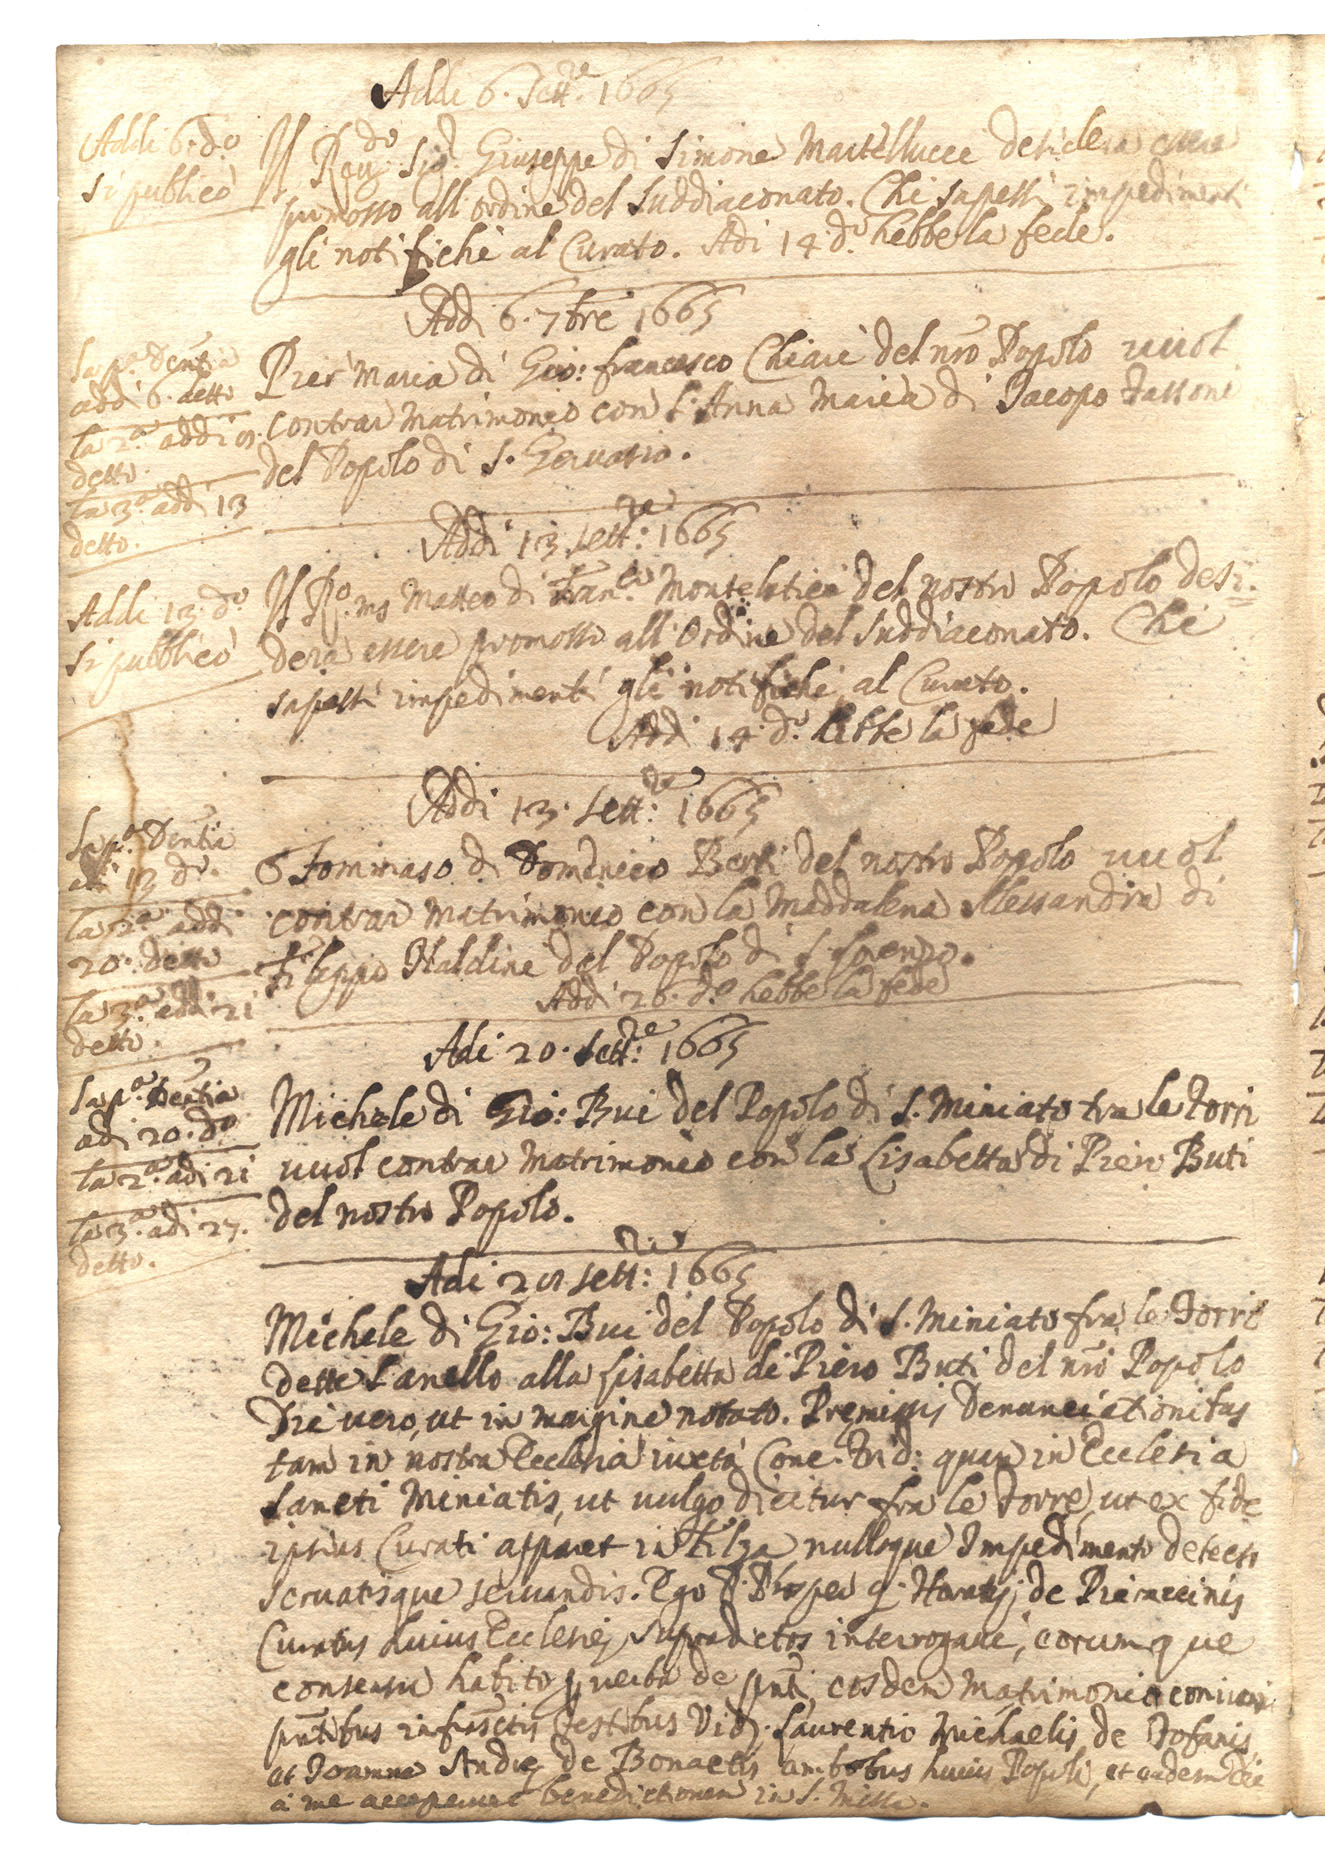 Addi 6. Sett.re 1665
Addi 6. d.o
si publicò
Il Rev.do Sig.r Giuseppe di Simone Martellucci desidera essere
promosso all'ordine del Suddiaconato. Chi sapessi impedimenti
gli notifichi al Curato. Adi 14 d.o hebbe la fede.
Addi 6. 7bre 1665
La p.a Denũtia
addi 6. detto
la 2.a addi
detto.
la 3.a addi 13
detto.
Pier Maria di Gio: francesco Chiari del nrõ Popolo vuol
contrar Matrimonio con Anna Maria di Jacopo
del Popolo di S. Gervasio.
Addi 13 sett.re 1665
Addi 13. d.o
si pubblicò
Il Matteo di Fran.co Montelatici del nostro Popolo desi=
dera essere promosso all'Ordine del Suddiaconato. Chi
sapessi impedimenti gli notifichi al Curato.
Addi 14. d.o hebbe la fede
Addi 13. sett.re 1665
La p.a Denũtia
adi 13 d.o
la 2.a addi
20. detto
la 3.a addi 21
detto.
Tommaso di Domenico Berti del nostro Popolo vuol
contrar Matrimonio con la Maddalena Alessandra di
Filippo Naldini del Popolo di S. Lorenzo.
Addi 26. d.o hebbe la fede
Adi 20. sett.re 1665
La p.a Denũtia
adi 20. d.o
la 2.a adi 21
la 3.a adi 27.
detto.
Michele di Gio: Bui del Popolo di S. Miniato tra le Torri
vuol contrar Matrimonio con la Lisabetta di Piero Buti
del nostro Popolo.
Adi sett.re 1665
Michele di Gio: Bui del Popolo di S. Miniato fra le Torri
dette l'anello alla Lisabetta di Piero Buti del nrõ Popolo
Die vero, ut in margine notato. Premissis Denunciationibus
tam in nostra Ecclesia iuxta Conc. Trid: quam in Ecclesia
Sancti Miniatis, ut vulgo dicitur fra le Torre, ut ex fide
ipsius Curati apparet in Filza nulloque Impedimento detecto
servatisque servandis. Ego P. Prosper q. Horatij de Pieraccinis
Curatus huius Ecclesię supradictos interrogavi, eorumque
consensu habito p verba de pnti, eosdem Matrimonio coniunxi
pntibus infrascttis testibus Vidz. Laurentio Michaelis de Tofanis
et Joanne Andrę de Bonaetis ambobus huius Popoli, et eadem die
a me acceperunt benedictionem in S. Missa.